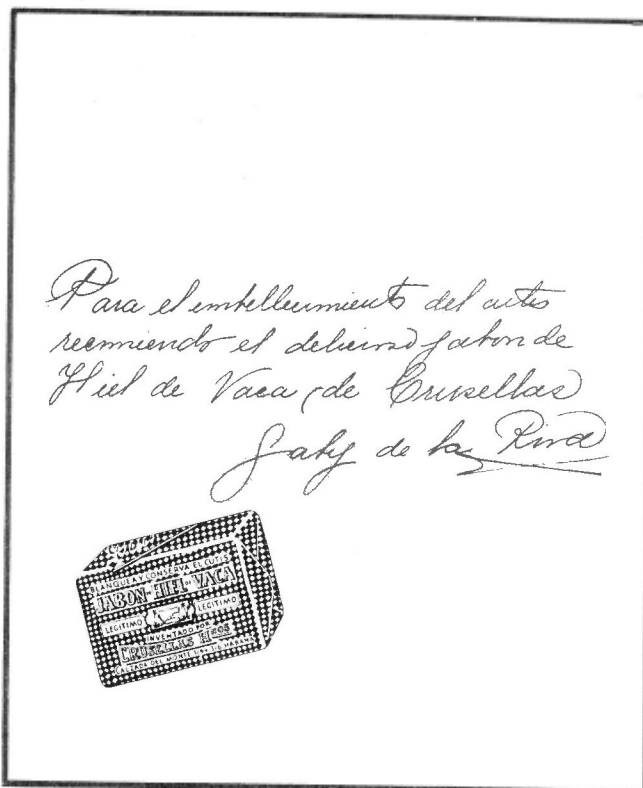 Para el embellecimiento del cutis
recomiendo el delicioso jabon de
Hiel de Vaca, de Crusellas
Gaby de la Riva
BLANQUEA Y CONSERVA EL CUTIS
JABON DE HIEL DE VACA
LEGITIMO LEGITIMO
INVENTADO POR
CRUSELLAS HNOS
CALZADA DEL MONTE HABANA